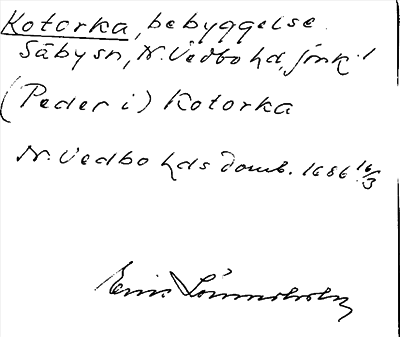 Kotorka, bebyggelse.
Säby sn, N. Vedbo hd, Jönk. l
(Peder i) Kotorka
N. Vedbo hds domb. 1686 16/3